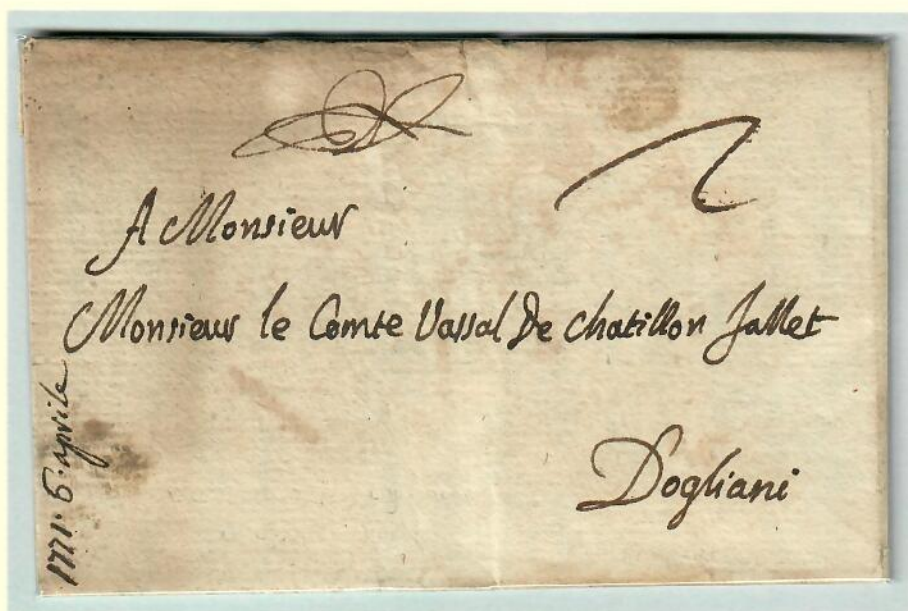 2
A Monsieur
Monsieur le Comte Vassal De Chatillon Jallet
Dogliani
1771. 6. aprile